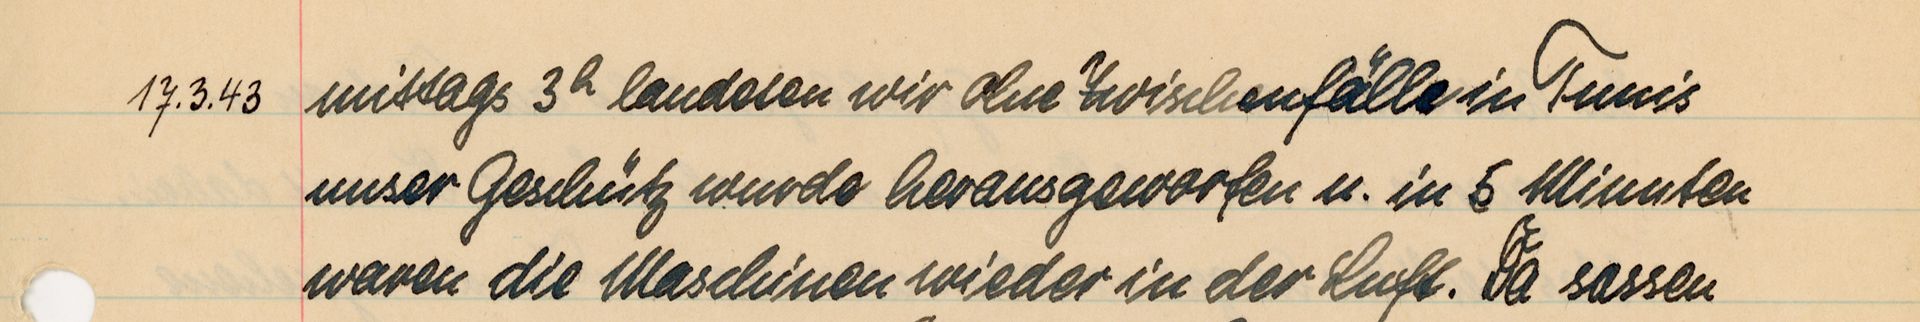 17.3.43 mittags 3h landeten wir ohne Zwischenfälle in Tunis
unser Geschütz wurde herausgeworfen u. in 5 Minuten
waren die Maschinen wieder in der Luft. Da sassen